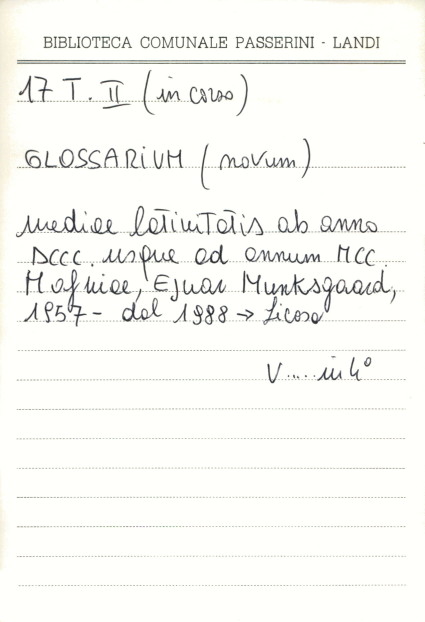 BIBLIOTECA COMUNALE PASSERINI - LANDI
17 T. II (in corso)
GLOSSARIUM (novum)
mediae latinitatis ab anno
DCCC. usque ad annum MCC.
Hafniae, Ejnar Munksgaard,
1957 - dal 1988 → Licosa
V..... in 4°